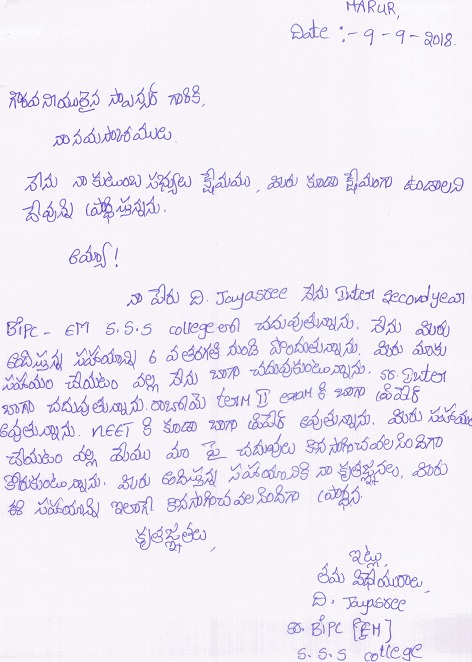 MARUR,
Date :- 9-9-2018.
గౌరవనీయులైన స్పాన్సర్ గారికి,
నా నమస్కారములు.
నేను నా కుటుంబ సభ్యులు క్షేమము, మీరు కూడా క్షేమంగా ఉండాలని
దేవున్ని ప్రార్థిస్తున్నను.
అమ్మా!
నా పేరు ది. Jayasree నేను Inter second year
BiPC - EM S.S.S college లో చదువుతున్నాను. నేను మీరు
అందిస్తున్న సహాయాన్ని 6 వ తరగతి నుండి పొందుతున్నాను. మీరు మాకు
సహాయం చేయటం వల్ల నేను బాగా చదువుకుంటున్నాను. Sr. Inter
బాగా చదువుతున్నాను. రాబోయె term II exam కి బాగా ప్రిపేర్
అవుతున్నాను. NEET కి కూడా బాగా ప్రిపేర్ అవుతున్నాను. మీరు సహాయం
చేయటం వల్ల మేము మా పై చదువులు కొనసాగించవలసిందిగా
కోరుకుంటున్నాను. మీరు అందిస్తున్న సహాయానికి నా కృతజ్ఞతలు, మీరు
ఈ సహాయాన్ని ఇలాగే కొనసాగించవలసిందిగా ప్రార్థన.
కృతజ్ఞతలు,
ఇట్లు,
తమ విధేయురాలు,
ది. Jayasree
Sr. BiPC [EM]
S.S.S college